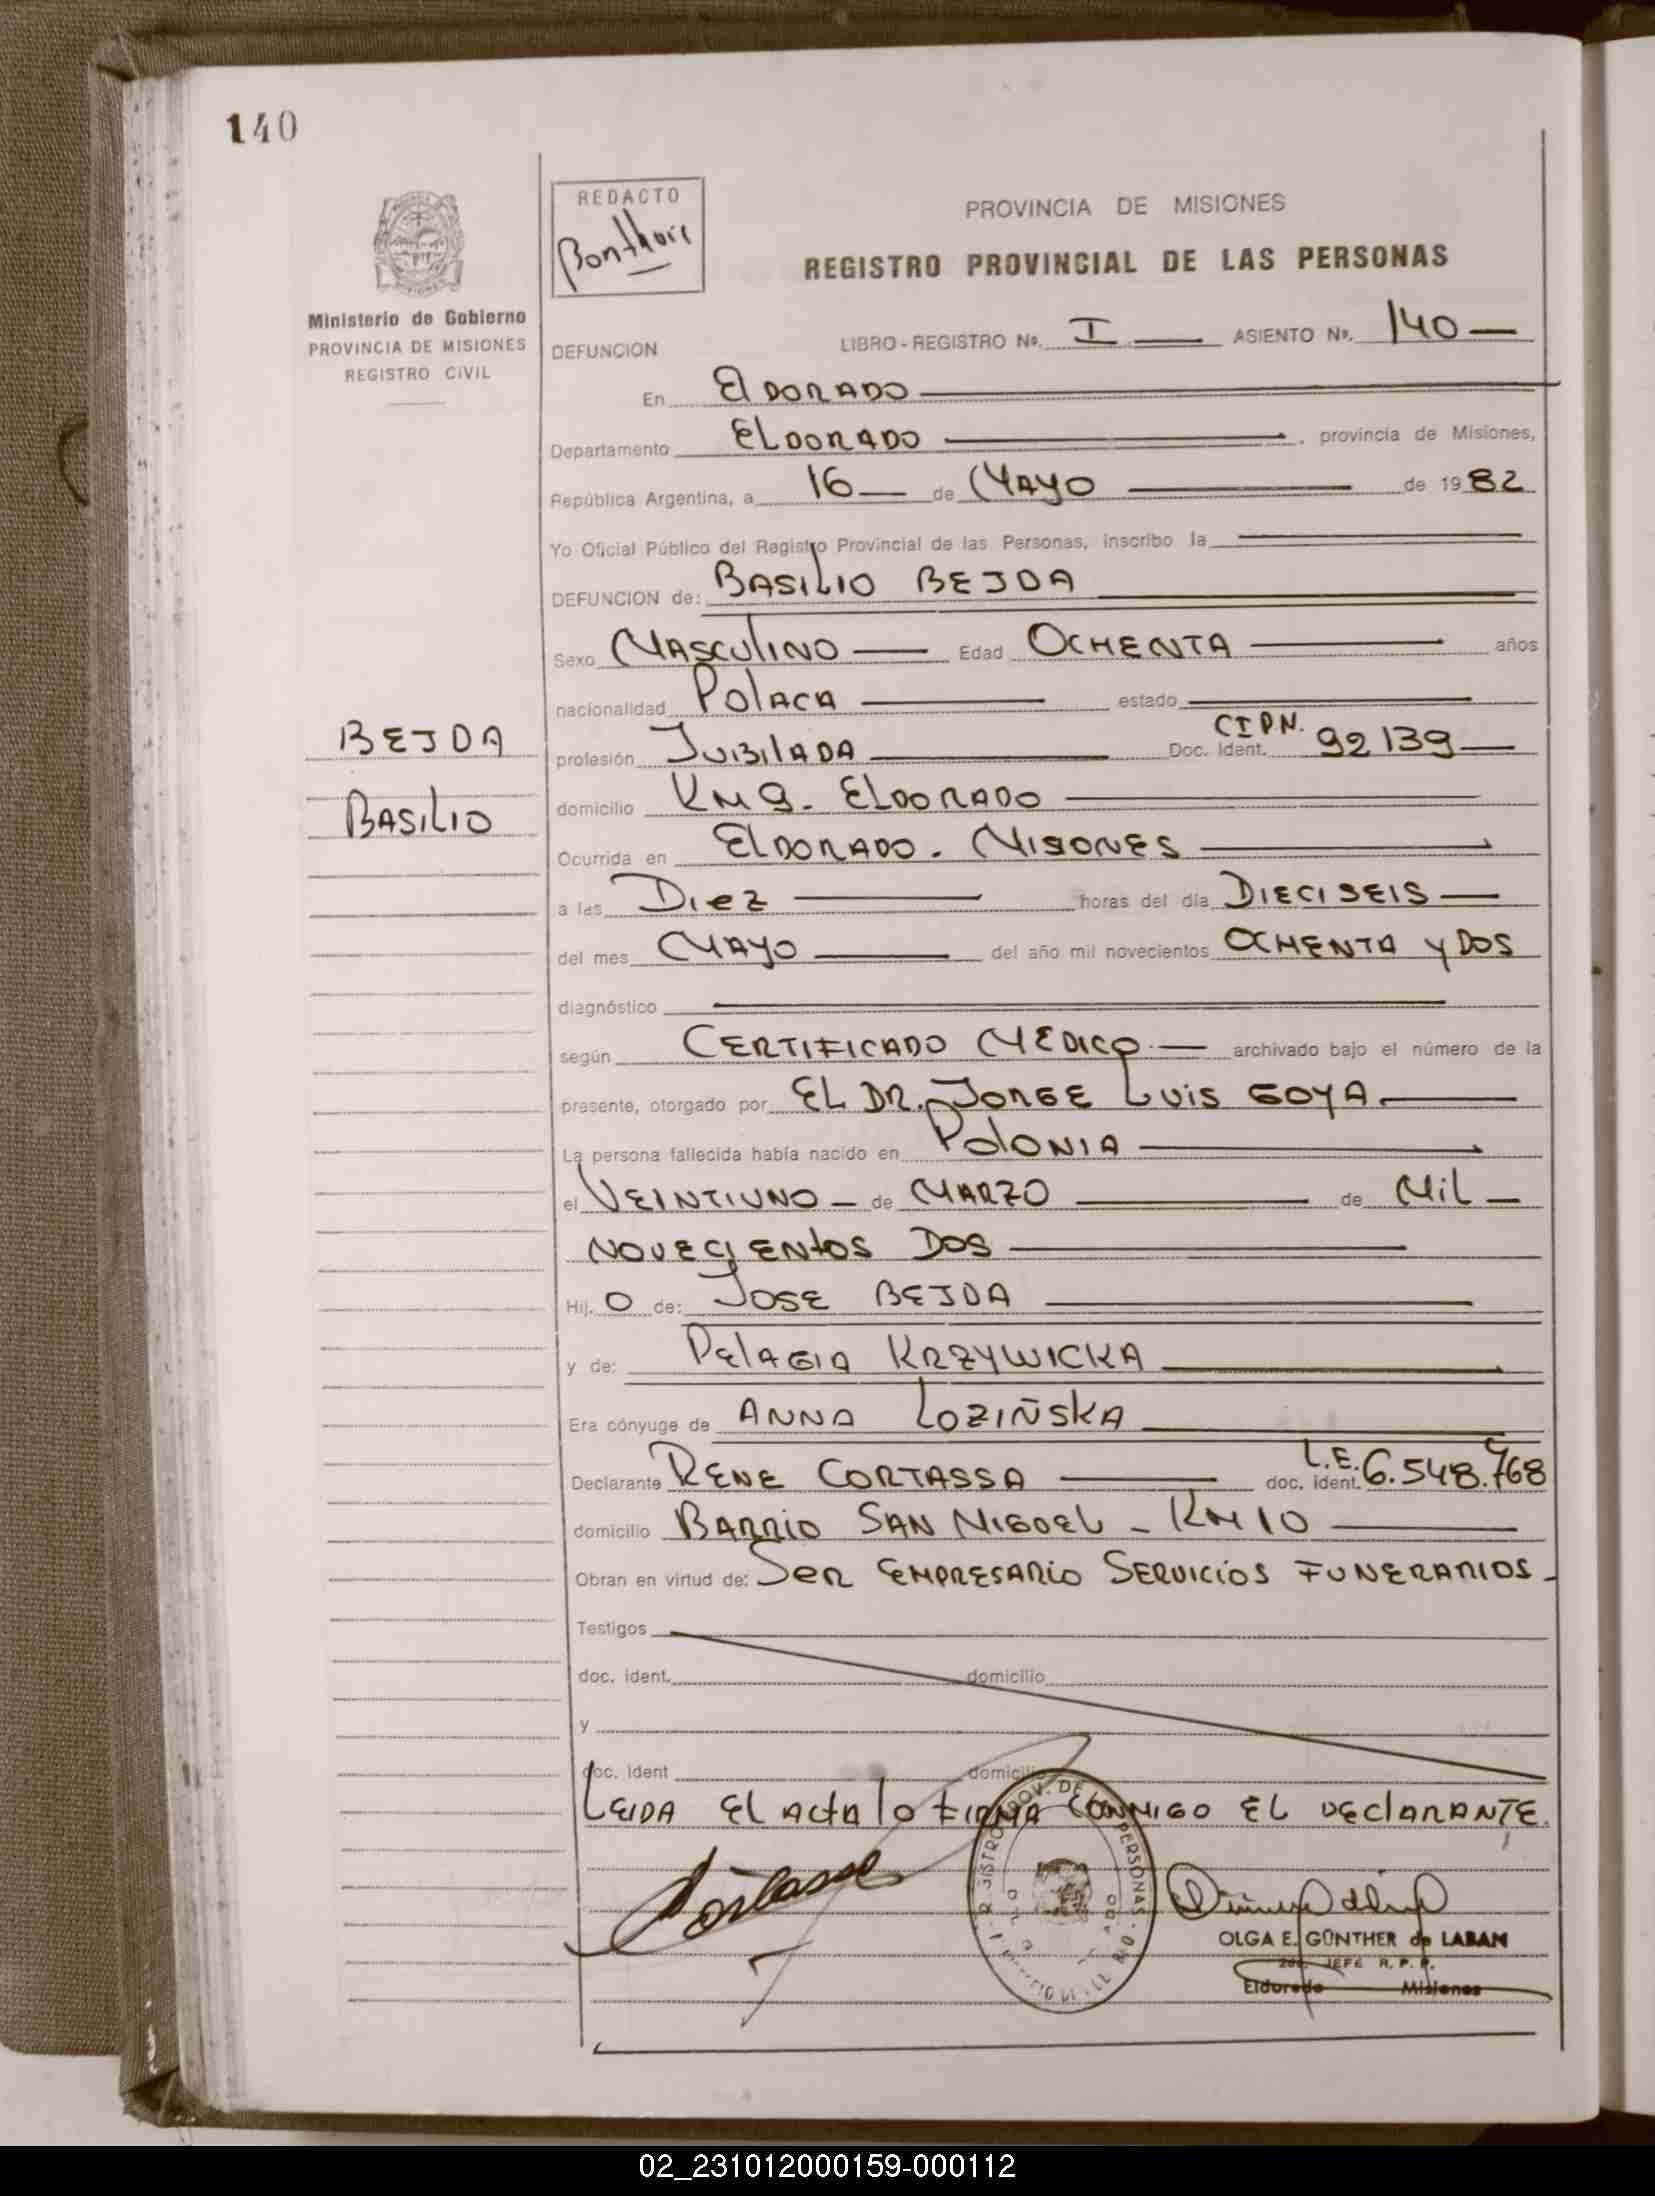 140
REDACTO
Bonthuis
PROVINCIA DE MISIONES
REGISTRO PROVINCIAL DE LAS PERSONAS
Ministerio de Gobierno
PROVINCIA DE MISIONES
REGISTRO CIVIL
DEFUNCION LIBRO-REGISTRO Nº. I ASIENTO Nº. 140
En ElDORADO
Departamento ELDORADO , provincia de Misiones,
República Argentina, a 16 de MAYO de 1982
Yo Oficial Público del Registro Provincial de las Personas, inscribo la
DEFUNCION de: BASILIO BEJDA
Sexo MASCULINO Edad OCHENTA años
nacionalidad POLACA estado
BEJDA
BASILIO
profesión JUBILADA Doc. Ident. CIPN. 92139
domicilio KM 9. ELDORADO
Ocurrida en ELDORADO. MISONES
a las DIEZ horas del día DIECISEIS
del mes MAYO del año mil novecientos OCHENTA y DOS
diagnóstico
según CERTIFICADO MEDICO. archivado bajo el número de la
presente, otorgado por EL DR. JORGE LUIS GOYA.
La persona fallecida había nacido en POLONIA
el VEINTIUNO de MARZO de MIL
NOVECIENTOS DOS
Hij. O de: JOSE BEJDA
y de: PELAGIA KRZYWICKA
Era cónyuge de ANNA LOZIÑSKA
Declarante RENE CORTASSA doc. ident. L.E. 6.548.768
domicilio BARRIO SAN MIGUEL - KM 10
Obran en virtud de: SER EMPRESARIO SERVICIOS FUNERARIOS.
Testigos
doc. ident. domicilio
y
doc. ident domicilio
LEIDA EL ACTA lO FIRMA CONMIGO EL DECLARANTE.
Cortassa
OLGA E. GÜNTHER de LABAN
2do. JEFE R. P. P.
Eldorado Misiones
02_231012000159-000112